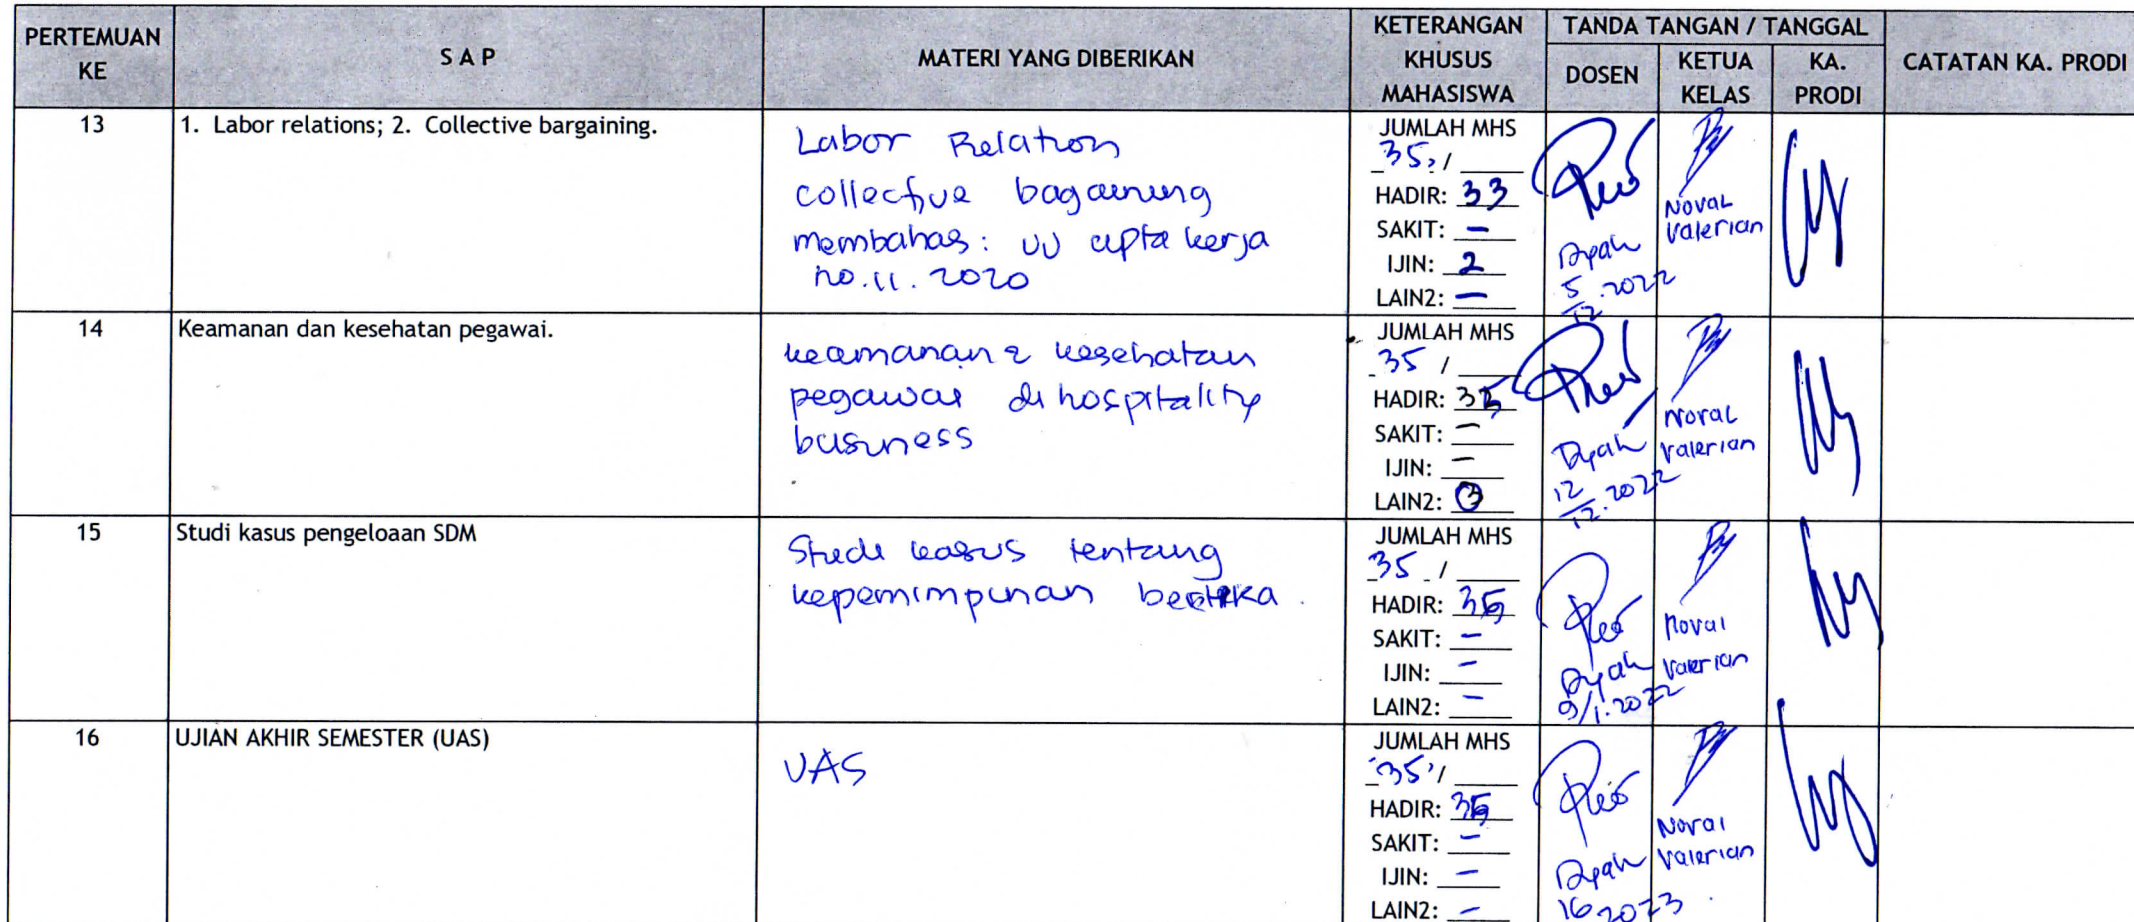 PERTEMUAN KE
S A P
MATERI YANG DIBERIKAN
KETERANGAN KHUSUS MAHASISWA
TANDA TANGAN / TANGGAL
DOSEN
KETUA KELAS
KA. PRODI
CATATAN KA. PRODI
13
1. Labor relations; 2. Collective bargaining.
Labor Relation
collective bagaining
membahas: UU cipta kerja
no.11. 2020
JUMLAH MHS
35 /
HADIR: 33
SAKIT: -
IJIN: 2
LAIN2: -
Dyah
5/12.2022
Noval
Valerian
14
Keamanan dan kesehatan pegawai.
keamanan & kesehatan
pegawai di hospitality
business
JUMLAH MHS
35 /
HADIR:
SAKIT: -
IJIN: -
LAIN2:
Dyah
12/12.2022
Noval
Valerian
15
Studi kasus pengeloaan SDM
Studi kasus tentang
kepemimpinan beretika.
JUMLAH MHS
35 /
HADIR: 35
SAKIT: -
IJIN: -
LAIN2: -
Dyah
9/1.2022
Noval
Valerian
16
UJIAN AKHIR SEMESTER (UAS)
UAS
JUMLAH MHS
35 /
HADIR: 35
SAKIT: -
IJIN: -
LAIN2: -
Dyah
16 2023
Noval
Valerian